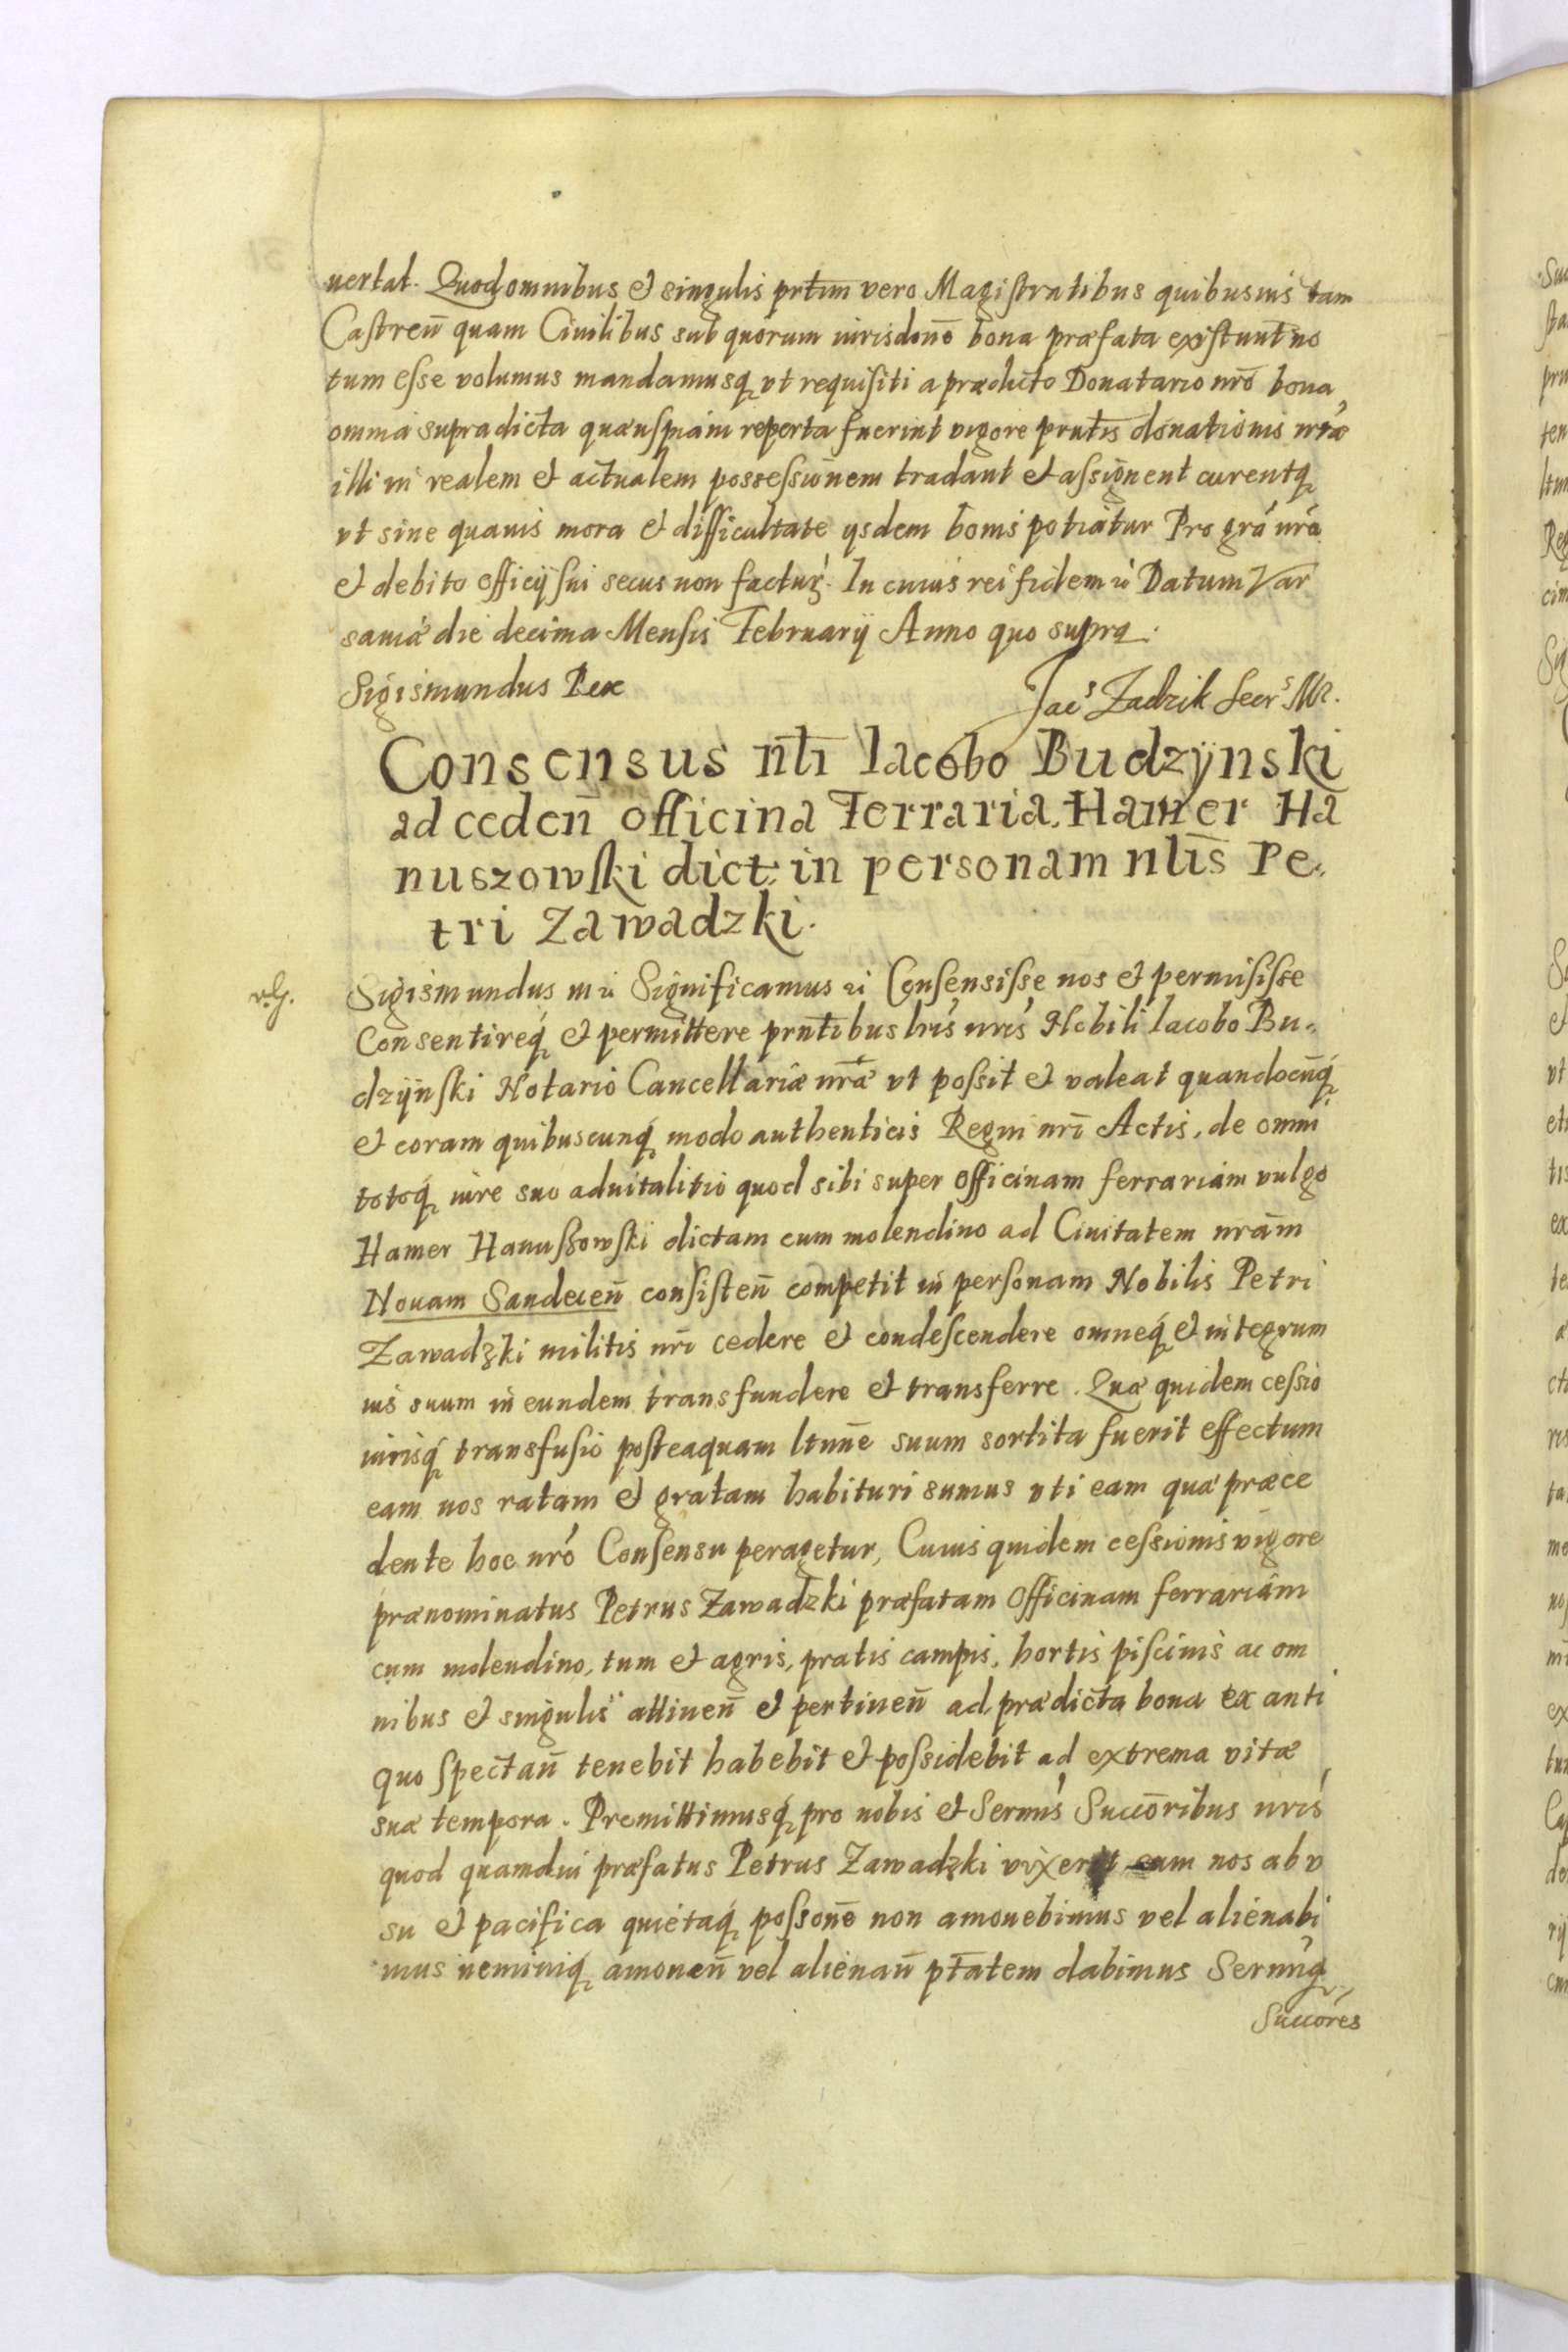 uertat. Quod omnibus et singulis prtim vero Magistratibus quibusuis tam
Castren̄ quam Ciuilibus sub quorum iurisdone bona præfata existunt no
tum esse volumus mandamusq̢ vt requisiti a prædicto Donatario nrō bona
omnia supradicta quæuspiam reperta fuerint vigore prntis donationis nræ
illi in realem et actualem possessionem tradant et assignent curentq̢
vt sine quauis mora et difficultate ysdem bonis potiatur Pro grā nrā
et debito officij sui secus non factur. In cuius rei fidem Datum Var
sauiæ die decima Mensis February Anno quo supra.
Sigismundus Rex
Jacs Zadzik Secrs MR.
Consensus nli Iacobo Budzÿnski
ad ceden̄ officina Ferraria. Hamer Ha
nuszowski dict: in personam nlis Pe,
tri Zawadzki.
Sigismundus Significamus Consensisse nos et permisisse
Consentireq́ et permittere prntibus lris nris Nobili Iacobo Bu,
dzÿnski Notario Cancellariæ nræ vt possit et valeat quandocun̄q́
et coram quibuscunq́ modo authenticis Regni nri Actis, de omni
totoq́ iure suo aduitalitio quod sibi super officinam ferrariam vulgo
Hamer Hanuszowski dictam cum molendino ad Ciuitatem nram
Nouam Sandecen̄ consisten̄ competit in personam Nobilis Petri
Zawadzki militis nri cedere et condescendere omneq́ et integrum
ius suum in eundem transfundere et transferre. Quæ quidem cessio
iurisq́ transfusio posteaquam ltime suum sortita fuerit effectum
eam nos ratam et gratam habituri sumus vti eam quæ præce
dente hoc nrō Consensu peragetur, Cuius quidem cessionis vigore
prænominatus Petrus Zawadzki præfatam officinam ferrariam
cum molendino, tum et agris, pratis campis, hortis piscinis ac om
nibus et singulis attinen̄ et pertinen̄ ad prædicta bona ex anti
quo spectan̄ tenebit habebit et possidebit ad extrema vitæ
suæ tempora. Promittimusq́ pro nobis et Sermis Succōribus nris
quod quamdiu præfatus Petrus Zawadzki vixerit eum nos ab v
su et pacifica quietaq́ possonē non amouebimus vel alienabi
mus neminiq́ amouen̄ vel alienan̄ ptatem dabimus Sermiq́
Succōres